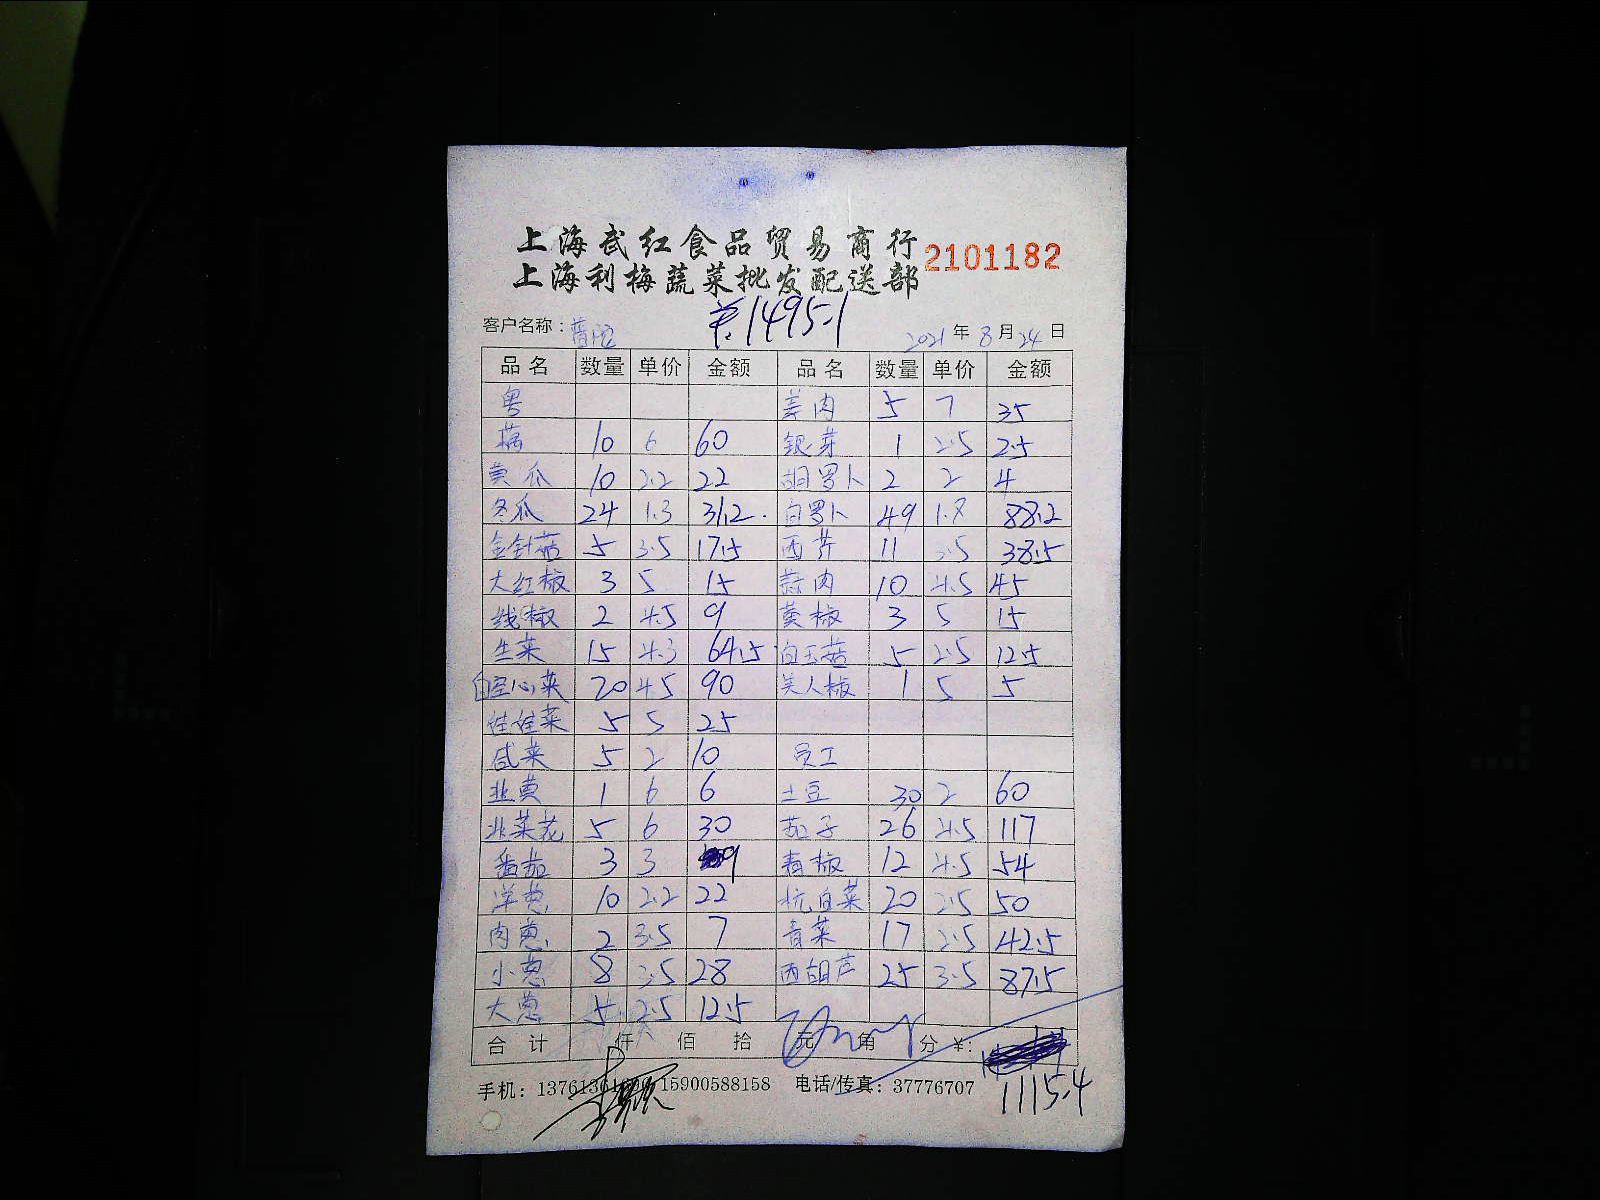 上海武红食品贸易商行
上海利梅蔬菜批发配送部 2101182
¥:1495.1
客户名称: 2021年8月24日
品名 数量 单价 金额 品名 数量 单价 金额
粤 姜肉 5 7 35
藕 10 6 60 银芽 1 2.5 2.5
黄瓜 10 2.2 22 胡罗卜 2 2 4
冬瓜 24 1.3 31.2. 白罗卜 49 1.8 88.2
金针菇 5 3.5 17.5 西芹 11 3.5 38.5
大红椒 3 5 15 蒜肉 10 4.5 45
线椒 2 4.5 9 黄椒 3 5 15
生菜 15 4.3 64.5 白玉菇 5 2.5 12.5
白空心菜 20 4.5 90 美人椒 1 5 5
娃娃菜 5 5 25
咸菜 5 2 10 员工
韭黄 1 6 6 土豆 30 2 60
韭菜花 5 6 30 茄子 26 4.5 117
番茄 3 3 9 青椒 12 4.5 54
洋葱 10 2.2 22 杭白菜 20 2.5 50
肉葱 2 3.5 7 青菜 17 2.5 42.5
小葱 8 3.5 28 西胡芦 25 3.5 87.5
大葱 5 2.5 12.5
合计 仟 佰 拾 元 角 分 ¥:
1115.4
手机: 15900588158 电话/传真: 37776707